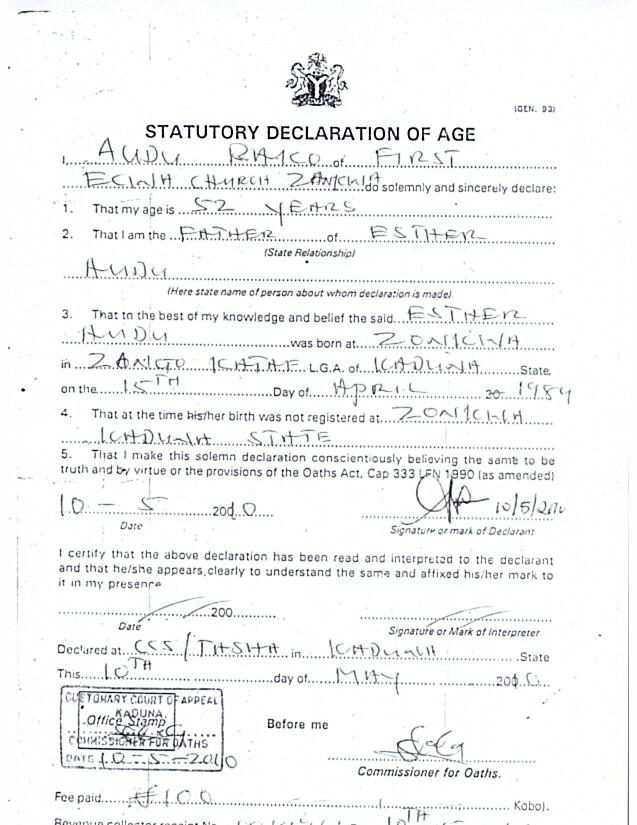 (GEN. 93)
STATUTORY DECLARATION OF AGE
I, AUDU of FIRST
ECWA CHURCH do solemnly and sincerely declare:
1. That my age is 52 YEARS
2. That I am the FATHER of ESTHER
(State Relationship)
AUDU
(Here state name of person about whom declaration is made)
3. That to the best of my knowledge and belief the said ESTHER
AUDU was born at ZONKWA
in ZANGO KATAF L.G.A. of KADUNA State,
on the 15TH Day of APRIL 20 1984
4. That at the time his/her birth was not registered at ZONKWA
KADUNA STATE
5. That I make this solemn declaration conscientiously believing the same to be
truth and by virtue or the provisions of the Oaths Act, Cap 333 LFN 1990 (as amended)
10 - 5 2000 10/5/2010
Date Signature or mark of Declarant
I certify that the above declaration has been read and interpreted to the declarant
and that he/she appears, clearly to understand the same and affixed his/her mark to
it in my presence
200
Date Signature or Mark of Interpreter
Declared at in KADUNA State
This 10TH day of MAY 200
CUSTOMARY COURT OF APPEAL
KADUNA
Office Stamp
COMMISSIONER FOR OATHS
DATE 10-5-2010
Before me
Commissioner for Oaths.
Fee paid ₦100 ( Kobo).
Revenue collector receipt No 10TH